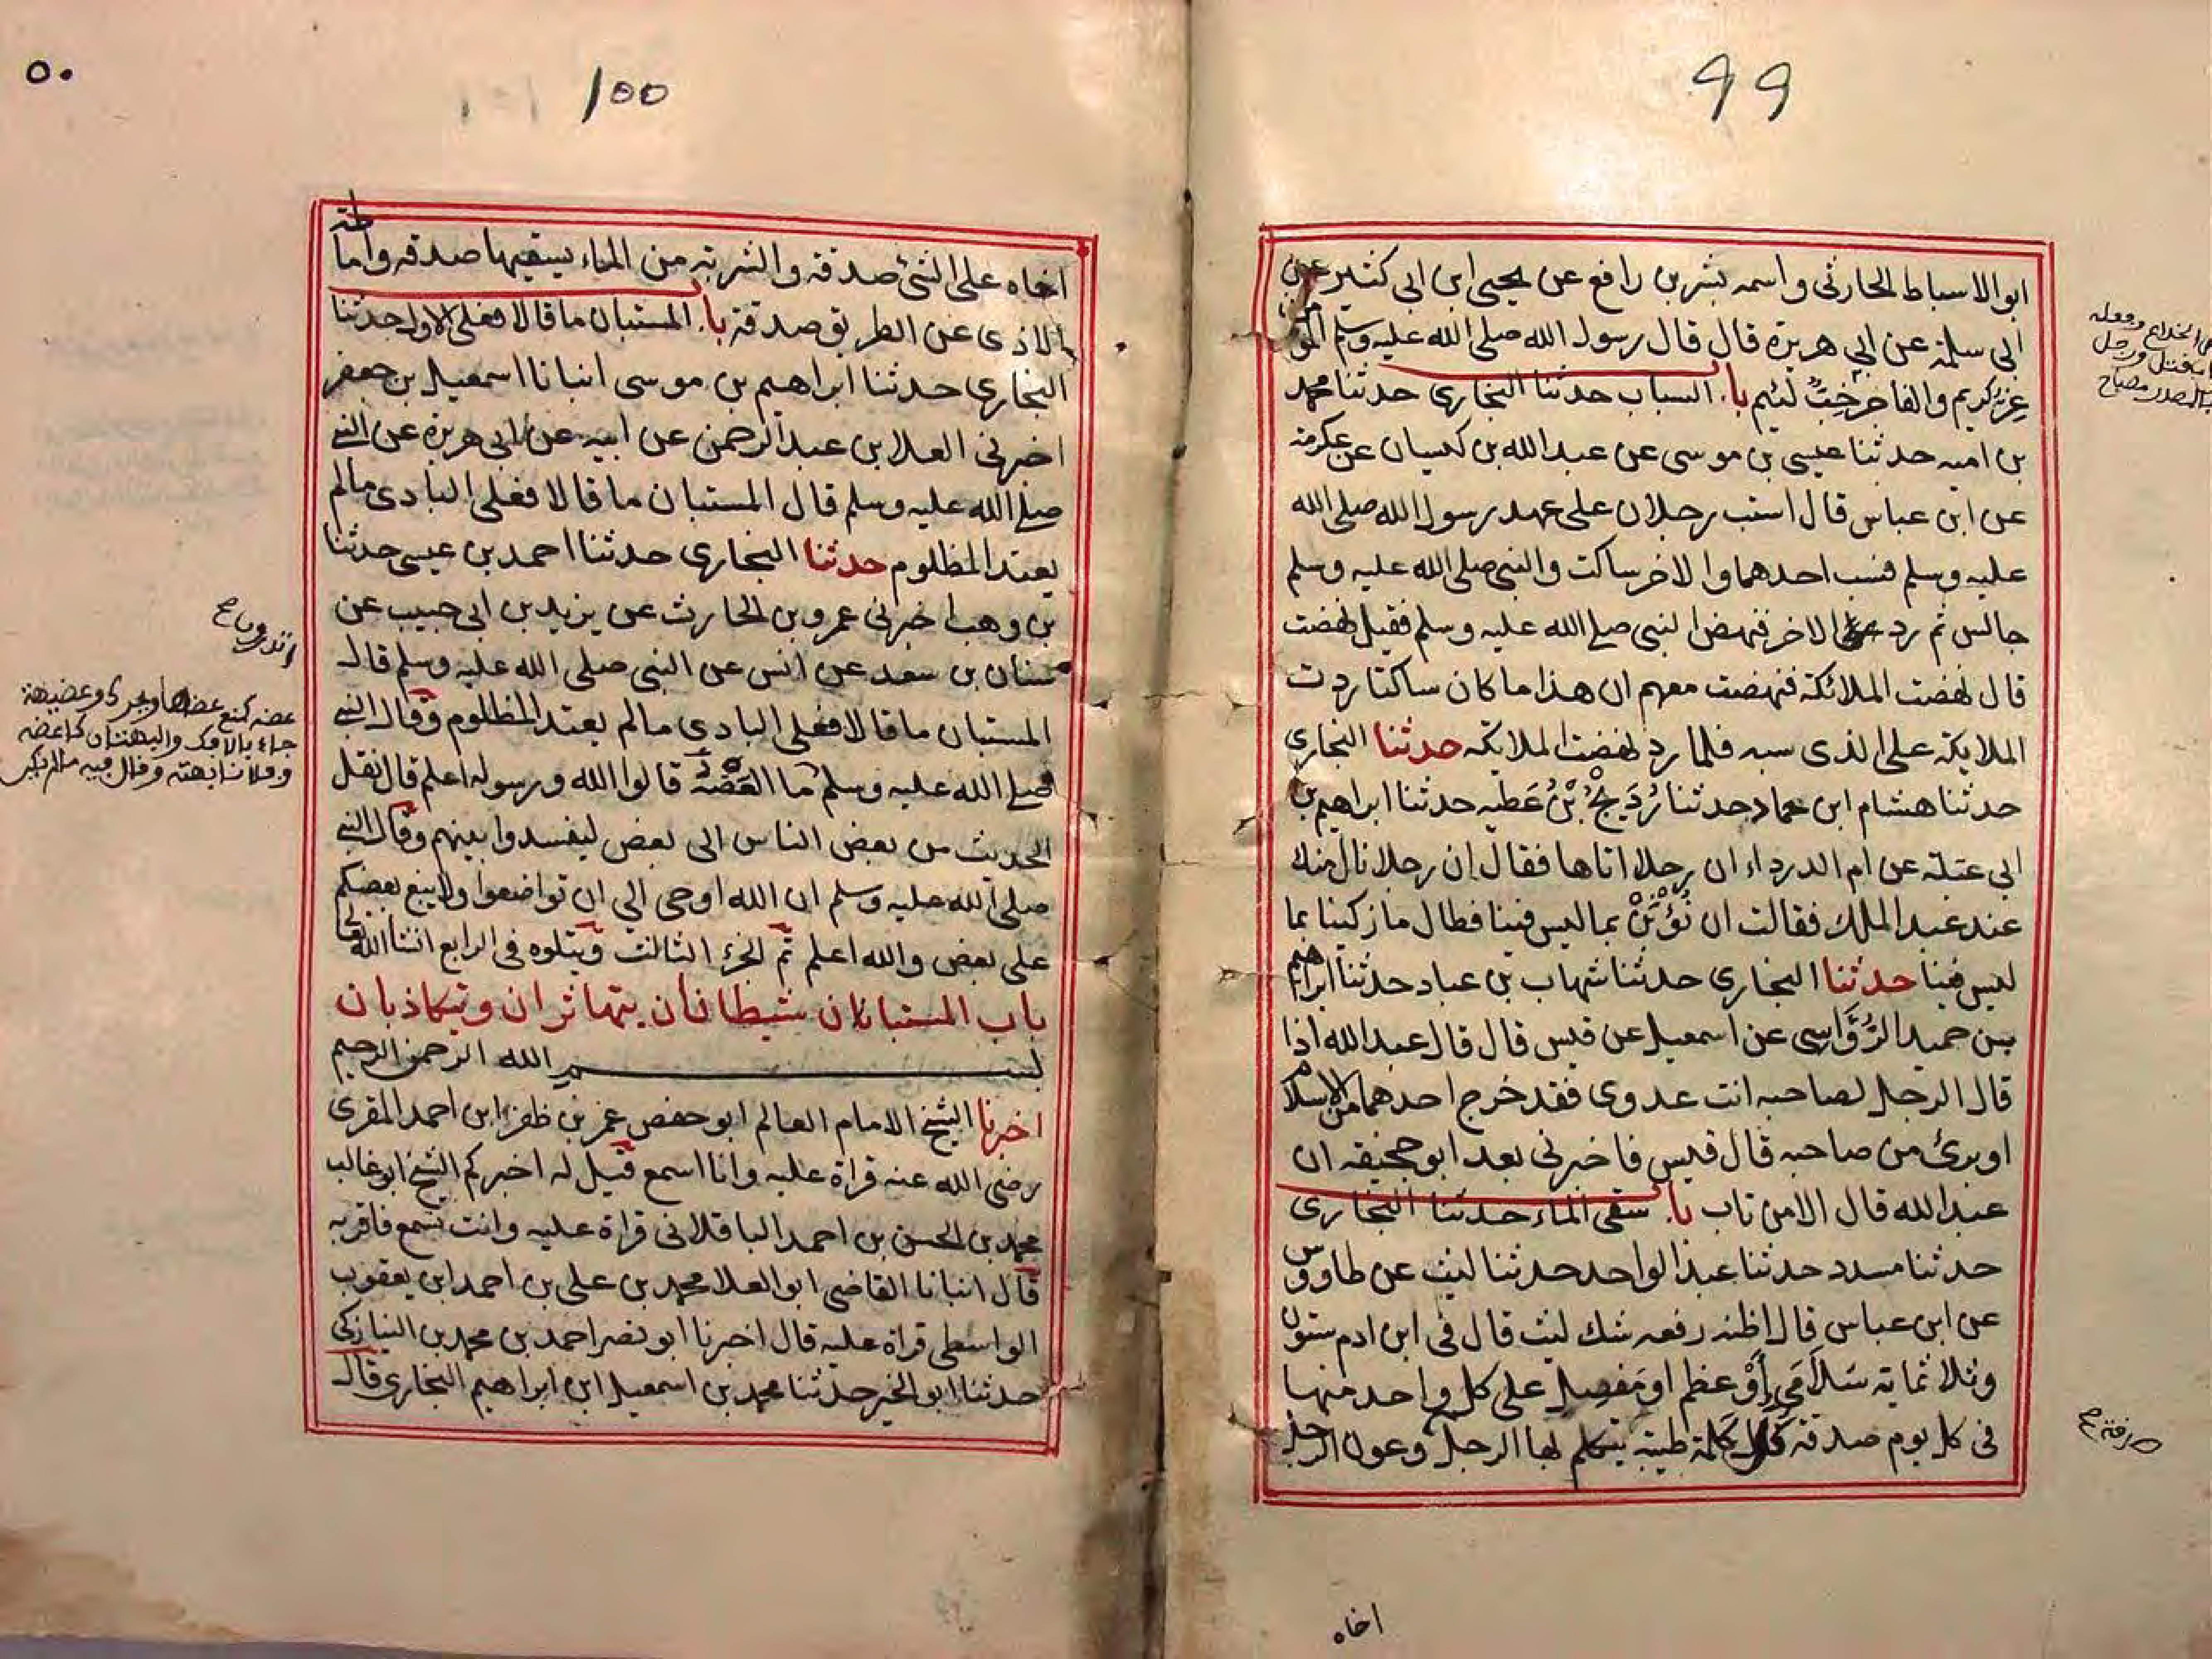 99
ابو الاسباط الحارثي واسمه بشر بن رافع عن يحيى ابن ابي كثير عن
ابي سلمة عن ابي هريرة قال قال رسول الله صلى الله عليه وسلم المومن
غر كريم والفاجر خب لئيم با. السباب حدثنا البخاري حدثنا محمد
بن اميه حدثنا عيسى بن موسى عن عبد الله بن كيسان عن عكرمة
عن ابن عباس قال استب رجلان على عهد رسول الله صلى الله
عليه وسلم فسب احدهما والاخر ساكت والنبي صلى الله عليه وسلم
جالس ثم رد الاخر فنهض النبي صلى الله عليه وسلم فقيل نهضت
قال نهضت الملائكة فنهضت معهم ان هذا ما كان ساكتا ردت
الملايكة على الذى سبه فلما رد نهضت الملايكه حدثنا البخاري
حدثنا هشام ابن عماد حدثنا رُدَيْحُ بْنُ عَطيه حدثنا ابراهيم بن
ابي عبلة عن ام الدرداء ان رجلا اتاها فقال ان رجلا نال منك
عند عبد الملك فقالت ان نُؤْبَنْ بما ليس فينا فطال ما زكينا بما
ليس فينا حدثنا البخاري حدثنا شهاب بن عباد حدثنا ابراهيم
بن حميد الرُّؤَاسي عن اسمعيل عن قيس قال قال عبد الله اذا
قال الرجل لصاحبه انت عدوى فقد خرج احدهما من الاسلام
او برئ من صاحبه قال قيس فاخبرني بعد ابو جحيفه ان
عبد الله قال الا من تاب با. سقى الماء حدثنا البخاري
حدثنا مسدد حدثنا عبد الواحد حدثنا ليث عن طاووس
عن ابن عباس قال اظنه رفعه شك ليث قال فى ابن ادم ستون
وثلاثماية سَلَامَى أَوْ عظم او مَفصل على كل واحد منها
فى كل يوم صدقة كل كلمة طيبة يتكلم بها الرجل وعون الرجل
اخاه
100
٥٠
اخاه على الشئ صدقة والشربة من الماء يسقيها صدقه واماطة
الاذى عن الطريق صدقة با. المستبان ما قالا فعلى الاول حدثنا
البخاري حدثنا ابراهيم بن موسى انبانا اسمعيل بن جعفر
اخبرني العلا بن عبد الرحمن عن ابيه عن ابي هريرة عن النبي
صلى الله عليه وسلم قال المستبان ما قالا فعلى البادى ما لم
يعتد المظلوم حدثنا البخاري حدثنا احمد بن عيسى حدثنا
بن وهب اخبرني عمرو بن الحارث عن يزيد بن ابي حبيب عن
سنان بن سعد عن انس عن النبي صلى الله عليه وسلم قال
المستبان ما قالا فعلى البادى ما لم يعتد المظلوم وقال النبي
صلى الله عليه وسلم ما العَضْهُ قالوا الله ورسوله اعلم قال نقل
الحديث من بعض الناس الى بعض ليفسدوا بينهم وقال النبي
صلى الله عليه وسلم ان الله اوحى الي ان تواضعوا ولا يبغ بعضكم
على بعض والله اعلم تم الجزء الثالث ويتلوه فى الرابع انشا الله تعالى
باب المستبانان شيطانان يتهاتران ويتكاذبان
بسم الله الرحمن الرحيم
اخبرنا الشيخ الامام العالم ابو حفص عمر بن ظفر ابن احمد المقرى
رضى الله عنه قراة عليه وانا اسمع قيل له اخبركم الشيخ ابو غالب
محمد بن الحسن بن احمد الباقلانى قراة عليه وانت تسمع فاقر به
قال انبانا القاضى ابو العلا محمد بن على بن احمد ابن يعقوب
الواسطى قراة عليه قال اخبرنا ابو نصر احمد بن محمد بن النيازكى
حدثنا ابو الخير حدثنا محمد بن اسمعيل ابن ابراهيم البخاري قال
عضه كمنع عضها ويحرك وعضيهة
جاء بالافك والبهتان كاعضه
وفلانا بهته وقال فيه ما لم يكن